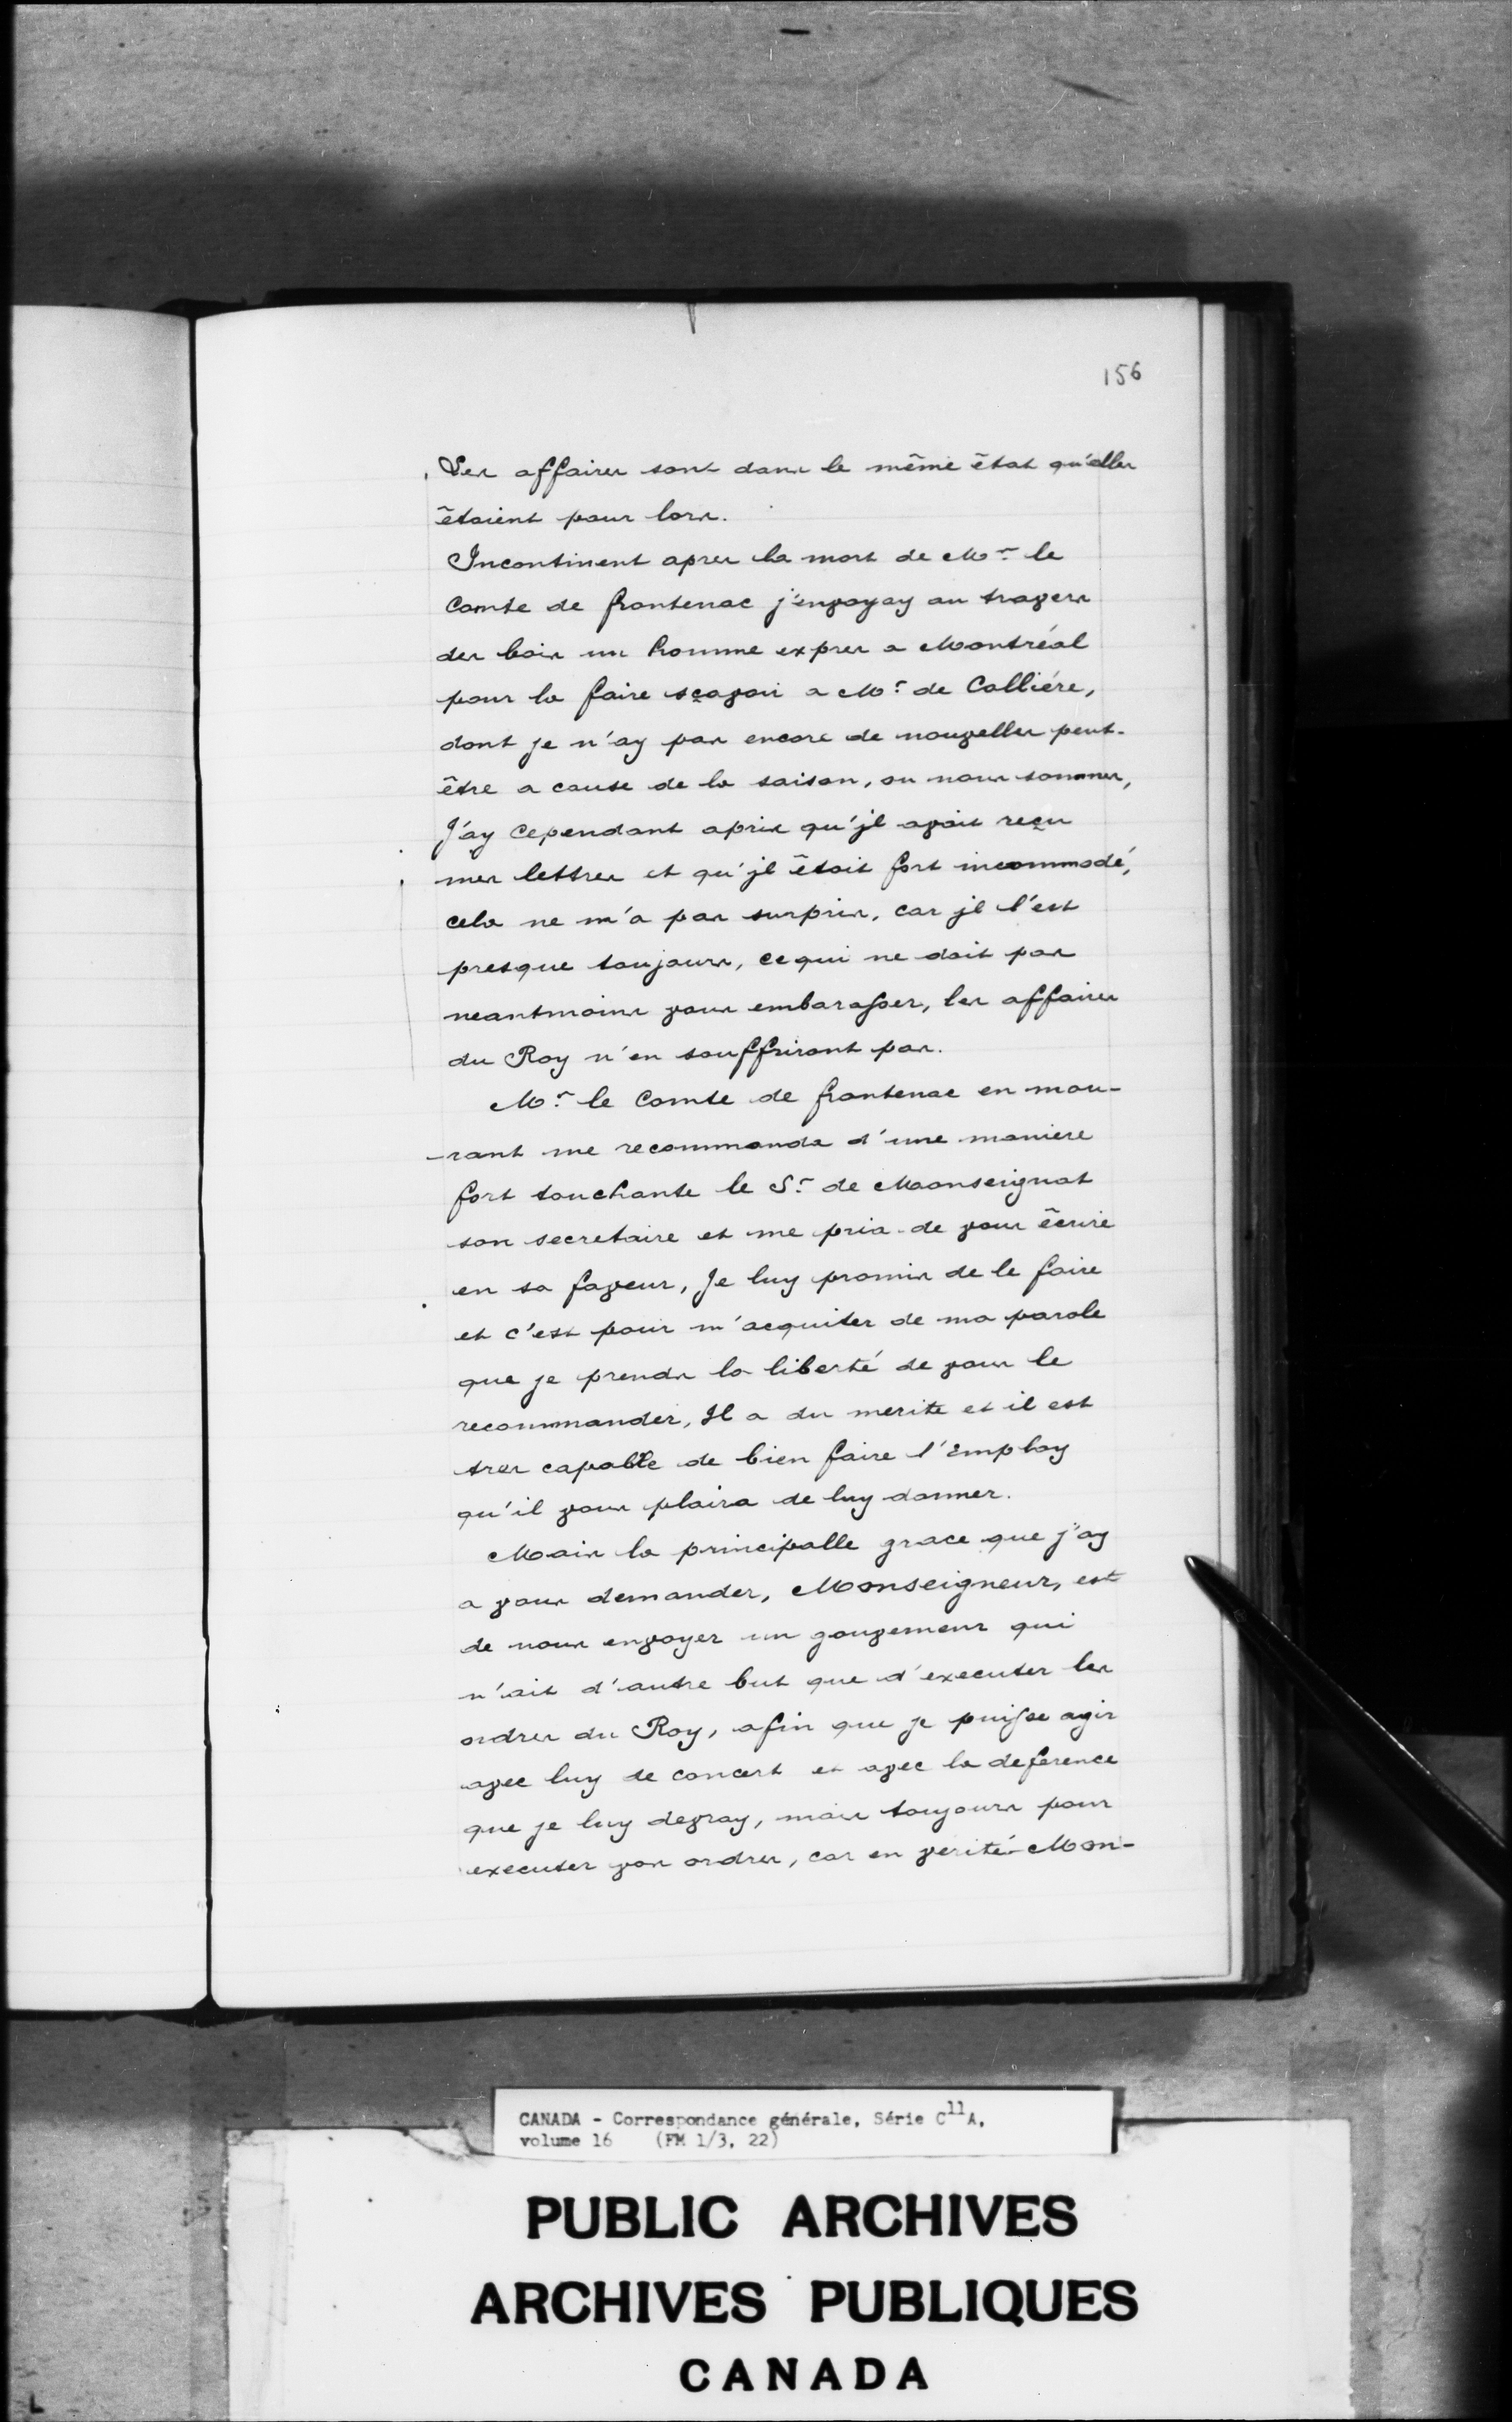 156
Les affaires sont dans le même état qu'elles
étoient pour lors.
Incontinent apres la mort de Mr. le
Comte de frontenac j'envoyay au travers
des bois un homme expres a Montréal
pour le faire sçavoir a Mr. de Calliére,
dont je n'ay pas encore de nouvelles peut-
être a cause de la saison, ou nous sommes,
J'ay Cependant apris qu'jl avoit reçu
mes lettres et qu'jl étoit fort incommodé,
cela ne m'a pas surpris, car jl l'est
presque toujours, cequi ne doit pas
neantmoins vous embarasser, les affaires
du Roy n'en souffriront pas.
Mr. le Comte de frontenac en mou-
-rant me recommanda d'une maniere
fort touchante le Sr. de Monseignat
son secretaire et me pria de vous écrire
en sa faveur, Je luy promis de le faire
et c'est pour m'acquiter de ma parole
que je prends la liberté de vous le
recommander, Il a du merite et il est
tres capable de bien faire l'Employ
qu'il vous plaira de luy donner.
Mais la principalle grace que j'ay
a vous demander, Monseigneur, est
de nous envoyer un gouverneur qui
n'ait d'autre but que d'executer les
ordres du Roy, afin que je puisse agir
avec luy de concert et avec la deference
que je luy devray, mais toujours pour
executer vos ordres, car en verité Mon-
CANADA - Correspondance générale, Série C11A,
volume 16 (FM 1/3, 22)
PUBLIC ARCHIVES
ARCHIVES PUBLIQUES
CANADA
L